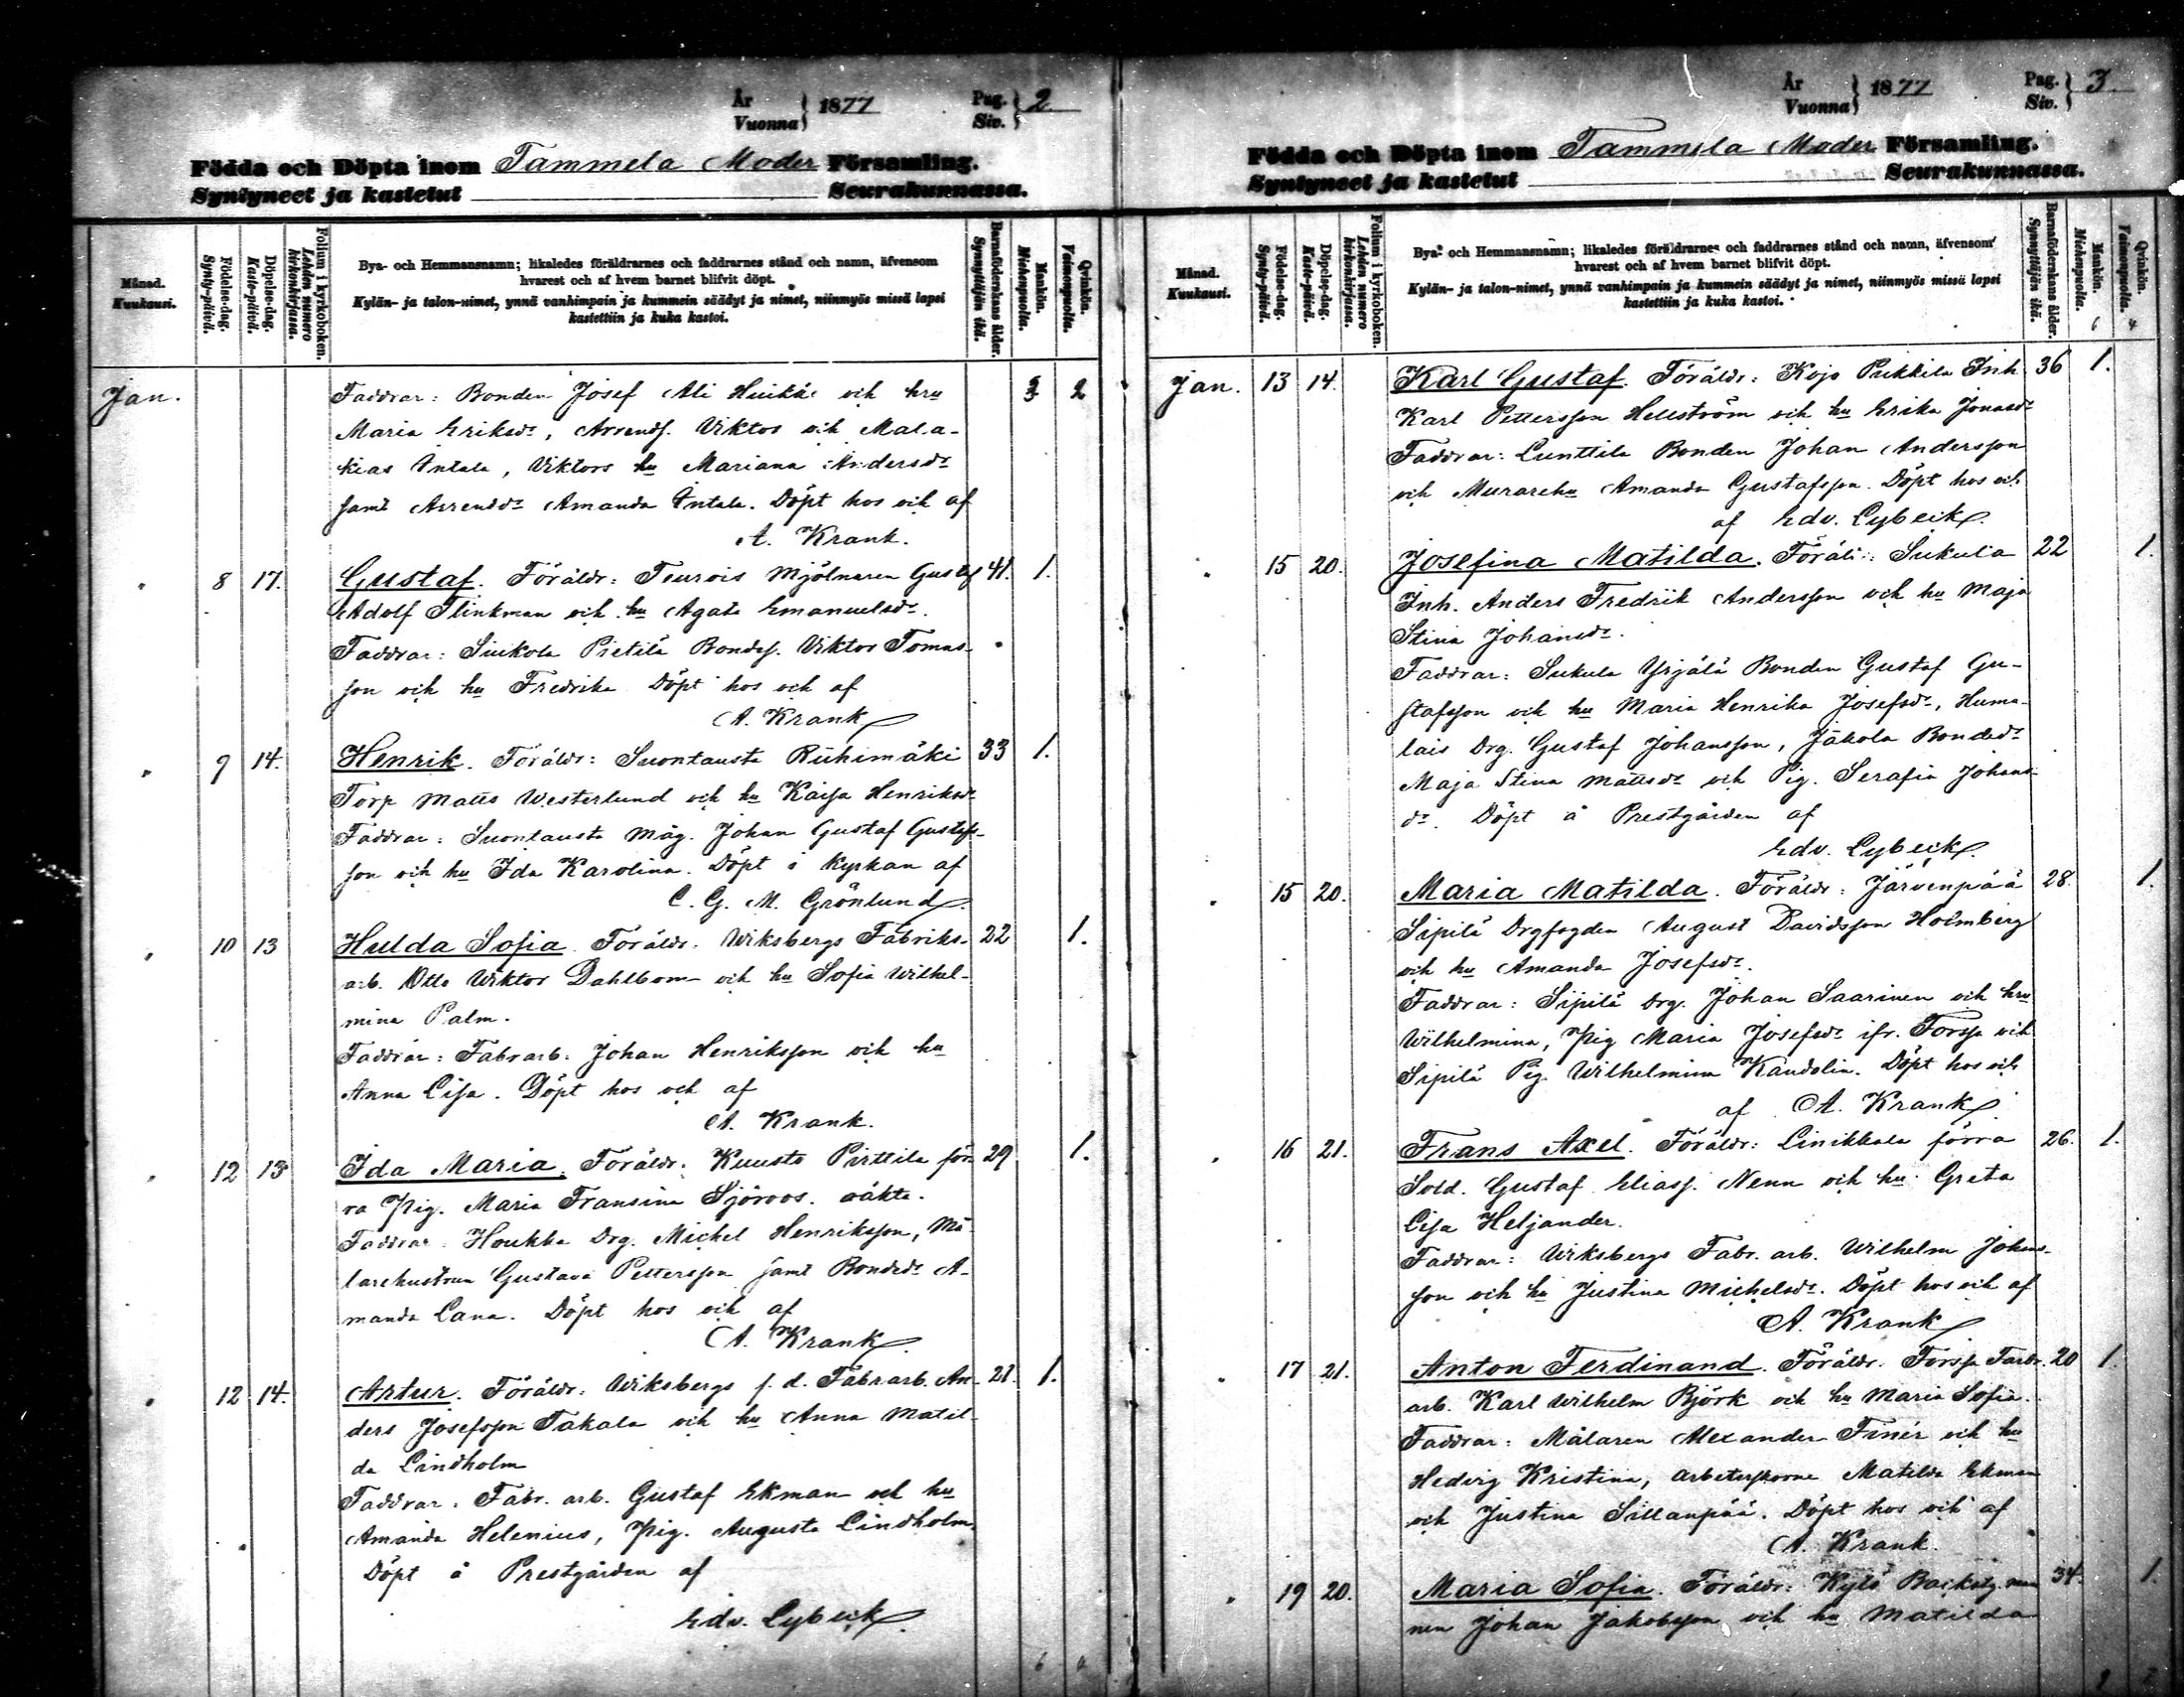 År
Vuonna } 1877 Pag.
Siv. } 2
Födda och Döpta inom Tammela Moder Församling.
Syntyneet ja kastetut Seurakunnassa.
Månad.
Kuukausi.
Födelse-dag.
Synty-päivä.
Döpelse-dag.
Kaste-päivä.
Folium i kyrkoboken.
Lehden numero
kirkonkirjassa.
Bya- och Hemmansnamn; likaledes föräldrarnes och faddrarnes stånd och namn, äfvensom
hvarest och af hvem barnet blifvit döpt.
Kylän- ja talon-nimet, ynnä vanhimpain ja kummein säädyt ja nimet, niinmyös missä lapsi
kastettiin ja kuka kastoi.
Barnaföderskans ålder.
Synnyttäjän ikä.
Mankön.
Miehenpuolta.
Qvinkön.
Vaimonpuolta.
Jan. Faddrar: Bonden Josef Ali Huikka och hru 3 2
Maria Eriksdr, Arrends. Viktor och Mala-
kias Intala, Viktors hu Mariana Andersdr
samt Arrenddr Amanda Intala. Döpt hos och af
A. Krank.
" 8 17. Gustaf. Föräldr: Teurois Mjölnaren Gustaf 41. 1.
Adolf Flinkman och hu Agata Emanuelsdr.
Faddrar: Suikola Pietilä Bondes. Viktor Tomas-
son och hu Fredrika Döpt hos och af
A. Krank
" 9 14. Henrik. Föräldr: Suontausta Riihimäki 33 1.
Torp Matts Westerlund och hu Kaisa Henriksdr
Faddrar: Suontausta Måg. Johan Gustaf Gustafs-
son och hu Ida Karolina. Döpt i kyrkan af
C. G. M. Grönlund.
" 10 13 Hulda Sofia. Föräldr. Wiksbergs Fabriks- 22 1.
arb. Otto Wiktor Dahlbom och hu Sofia Wilhel-
mina Palm.
Faddrar: Fabrarb. Johan Henriksson och hu
Anna Lisa. Döpt hos och af
A. Krank.
" 12 13 Ida Maria. Föräldr. Kuusto Pirttilä för- 29 1.
ra Pig. Maria Fransina Sjöroos. oäkta.
Faddrar. Houkka Drg. Michel Henriksson, Må-
larehustrun Gustava Pettersson samt Bondedr A-
manda Lana. Döpt hos och af
A. Krank
" 12 14. Artur. Föräldr: Wiksbergs f. d. Fabrarb. An- 21. 1.
ders Josefsson Takala och hu Anna Matil-
da Lindholm
Faddrar. Fabr. arb. Gustaf Ekman och hu
Amanda Helenius, Pig. Augusta Lindholm.
Döpt å Prestgården af
Edv. Lybeck.
6 4
År
Vuonna } 1877 Pag.
Siv. } 3
Födda och Döpta inom Tammela Moder Församling.
Syntyneet ja kastetut Seurakunnassa.
Månad.
Kuukausi.
Födelse-dag.
Synty-päivä.
Döpelse-dag.
Kaste-päivä.
Folium i kyrkoboken.
Lehden numero
kirkonkirjassa.
Bya- och Hemmansnamn; likaledes föräldrarnes och faddrarnes stånd och namn, äfvensom
hvarest och af hvem barnet blifvit döpt.
Kylän- ja talon-nimet, ynnä vanhimpain ja kummein säädyt ja nimet, niinmyös missä lapsi
kastettiin ja kuka kastoi.
Barnaföderskans ålder.
Synnyttäjän ikä.
Mankön.
Miehenpuolta.
Qvinkön.
Vaimonpuolta.
6 4
Jan. 13 14. Karl Gustaf. Föräldr: Kojo Pukkila Inh 36 1.
Karl Pettersson Hellström och hu Erika Jonasdr
Faddrar: Lunttila Bonden Johan Andersson
och Murarehu Amanda Gustafsson. Döpt hos och
af Edv. Lybeck.
" 15 20. Josefina Matilda. Föräldr: Sukula 22 1.
Inh. Anders Fredrik Andersson och hu Maja
Stina Johansdr.
Faddrar: Sukula Yrjälä Bonden Gustaf Gu-
stafsson och hu Maria Henrika Josefsdr, Huma-
lais Drg. Gustaf Johansson, Jakola Bondedr
Maja Stina Mattsdr och Pig. Serafia Johans-
dr. Döpt å Prestgården af
Edv. Lybeck.
" 15 20. Maria Matilda. Föräldr: Järvenpää 28. 1.
Sipilä Drgfogden August Davidsson Holmberg
och hu Amanda Josefsdr.
Faddrar: Sipilä Drg. Johan Saarinen och hru
Wilhelmina, Pig Maria Josefsdr ifr. Forssa och
Sipilä Pig. Wilhelmina Kandolin. Döpt hos och
af A. Krank
" 16 21. Frans Axel. Föräldr: Linikkala förra 26. 1.
Sold. Gustaf Eliass. Nenn och hu Greta
Lisa Heljander.
Faddrar: Wiksbergs Fabr. arb. Wilhelm Johans-
son och hu Justina Michelsdr. Döpt hos och af
A. Krank
" 17 21. Anton Ferdinand. Föräldr. Forssa Fabr. 20 1.
arb. Karl Wilhelm Björk och hu Maria Sofia.
Faddrar: Målaren Alexander Finér och hu
Hedvig Kristina, arbeterskorna Matilda Ekman
och Justina Sillanpää. Döpt hos och af
A. Krank.
" 19 20. Maria Sofia. Föräldr: Kylö Backstg.man 34. 1.
nen Johan Jakobsson och hu Matilda